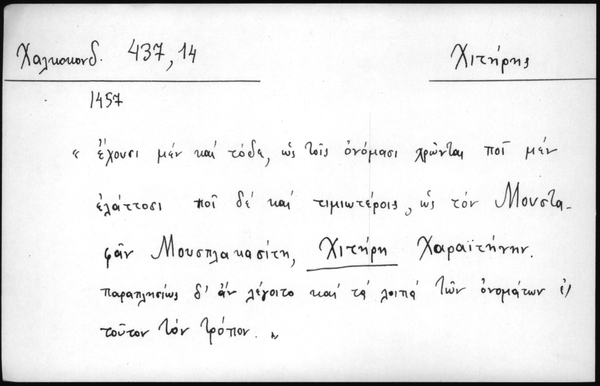 Χαλκοκονδ. 437,14 Χιτήρης
1457
« ἔχουσι μέν καί τόδε, ὡς τοῖς ὀνόμασι χρῶνται ποῖ μέν
ἐλάττοσι ποῖ δέ καί τιμιωτέροις, ὡς τόν Μουστα-
φᾶν Μουσπλακασίτη, Χιτήρη Χαραϊτήνην.
παραπλησίως δ' ἄν λέγοιτο καί τά λοιπά τῶν ὀνομάτων ἐς
τοῦτον τόν τρόπον. »